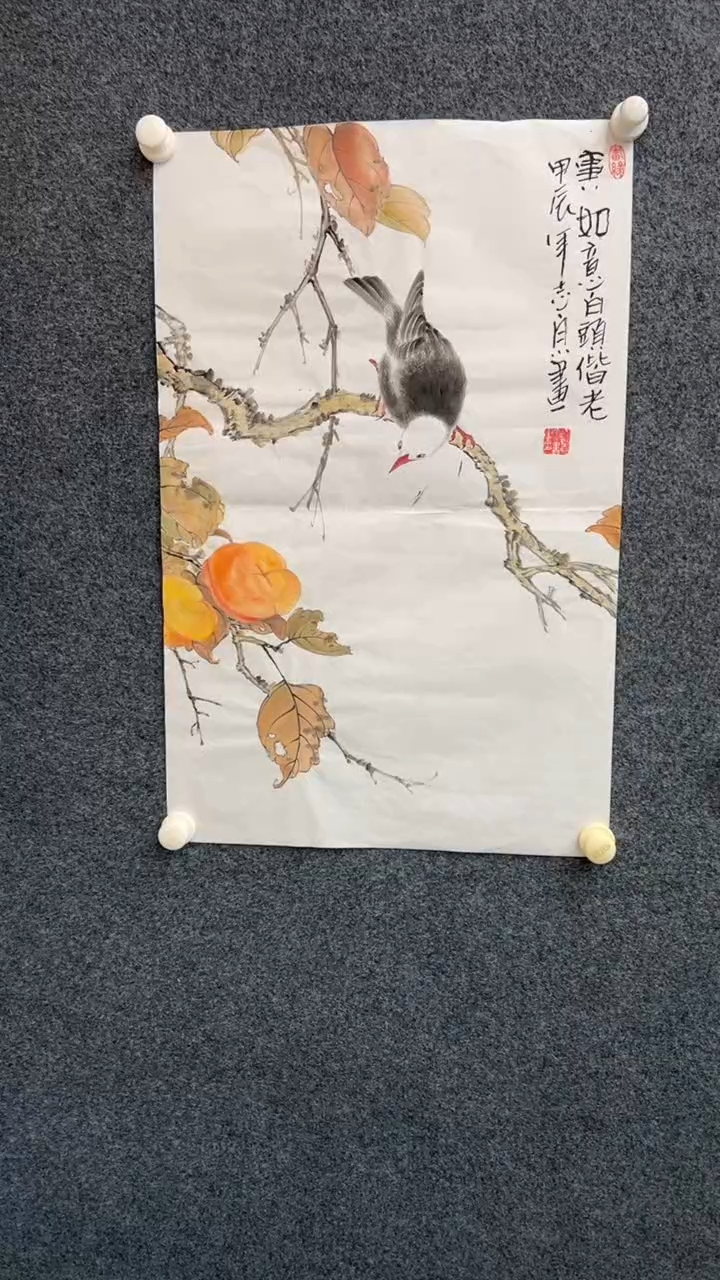 事事如意白頭偕老
甲辰年志良畫